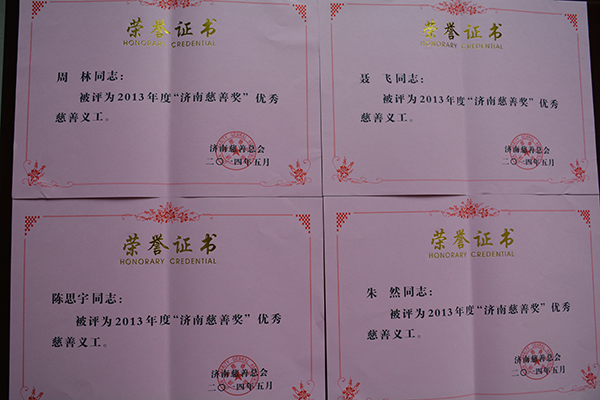 荣誉证书
HONORARY CREDENTIAL
周 林同志：
被评为2013年度“济南慈善奖”优秀
慈善义工。
济南慈善总会
二〇一四年五月
荣誉证书
HONORARY CREDENTIAL
聂 飞同志：
被评为2013年度“济南慈善奖”优秀
慈善义工。
济南慈善总会
二〇一四年五月
荣誉证书
HONORARY CREDENTIAL
陈思宇同志：
被评为2013年度“济南慈善奖”优秀
慈善义工。
济南慈善总会
二〇一四年五月
荣誉证书
HONORARY CREDENTIAL
朱 然同志：
被评为2013年度“济南慈善奖”优秀
慈善义工。
济南慈善总会
二〇一四年五月